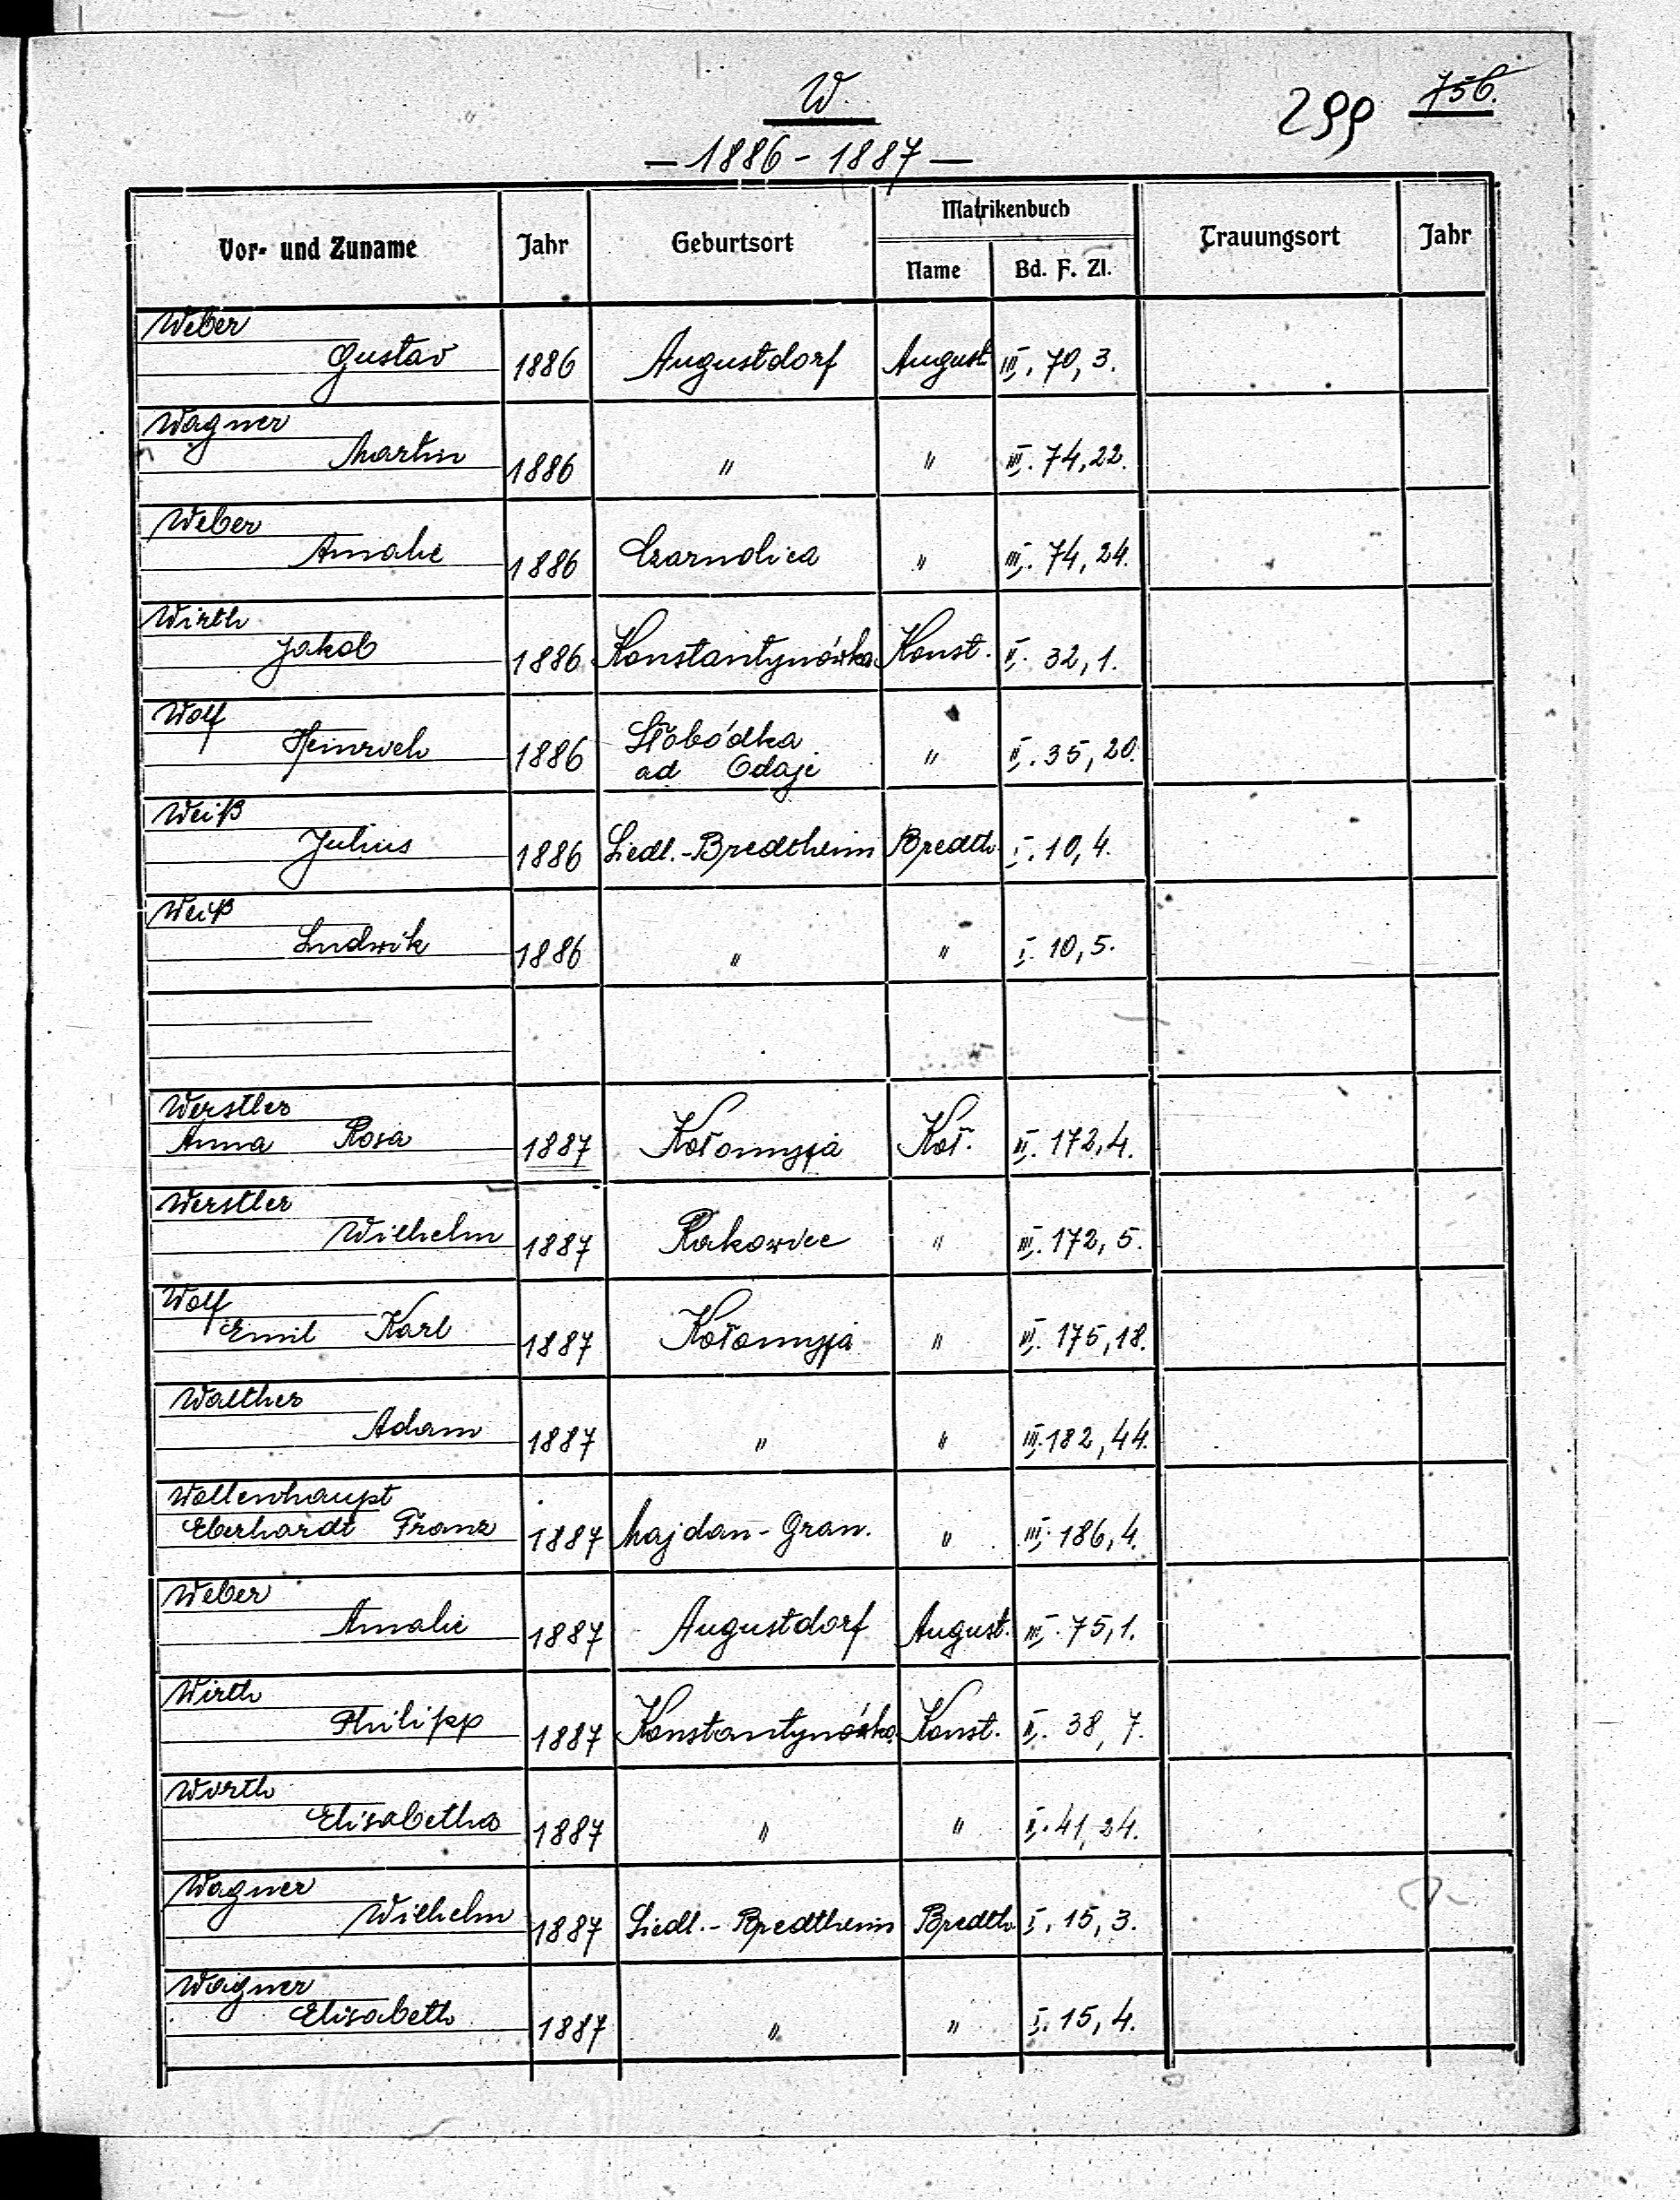 W.
299 756.
- 1886 - 1887 -
Vor- und Zuname Jahr Geburtsort Matrikenbuch Trauungsort Jahr
Name Bd. F. Zl.
Weber
Gustav 1886 Augustdorf August III. 70, 3.
Wagner
Martin 1886 " " III. 74, 22.
Weber
Amalie 1886 " III. 74, 24.
Wirth
Jakob 1886 Konstantynówka Konst. II. 32, 1.
Wolf
Heinrich 1886 Słobódka
ad Odaje " II. 35, 20.
Weiß
Julius 1886 Siedl.-Bredtheim Bredth. I. 10, 4.
Weiß
Ludwik 1886 " " I. 10, 5.
Werstler
Anna Rosa 1887 Kołomyja Koł. III. 172, 4.
Werstler
Wilhelm 1887 Rakowiec " III. 172, 5.
Wolf
Emil Karl 1887 Kołomyja " III. 175, 18.
Walther
Adam 1887 " " III. 182, 44.
Wollenhaupt
Eberhardt Franz 1887 Majdan-Gran. " III. 186, 4.
Weber
Amalie 1887 Augustdorf August. III. 75, 1.
Wirth
Philipp 1887 Konstantynówka Konst. II. 38, 7.
Wirth
Elisabetha 1887 " " II. 41, 24.
Wagner
Wilhelm 1887 Siedl.-Bredtheim Bredth. I. 15, 3.
Wagner
Elisabeth 1887 " " I. 15, 4.